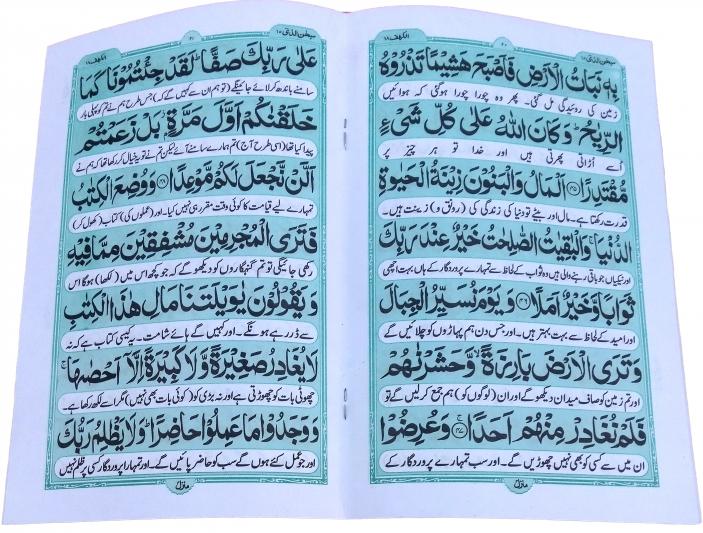 الكهف ١٨
٦٠
سبحن الذی ١٥
بِهٖ نَبَاتُ الْاَرْضِ فَاَصْبَحَ هَشِيْمًا تَذْرُوْهُ
زمین کی روئیدگی مل گئی۔ پھر وہ چورا چورا ہوگئی کہ ہوائیں
الرِّيٰحُ ؕ وَكَانَ اللّٰهُ عَلٰى كُلِّ شَىْءٍ
اُسے اُڑاتی پھرتی ہیں اور خدا تو ہر چیز پر
مُّقْتَدِرًا ﴿٤٥﴾ اَلْمَالُ وَالْبَنُوْنَ زِيْنَةُ الْحَيٰوةِ
قدرت رکھتا ہے۔ مال اور بیٹے تو دنیا کی زندگی کی (رونق و) زینت ہیں۔
الدُّنْيَا ۚ وَالْبٰقِيٰتُ الصّٰلِحٰتُ خَيْرٌ عِنْدَ رَبِّكَ
اور نیکیاں جو باقی رہنے والی ہیں وہ ثواب کے لحاظ سے تمہارے پروردگار کے ہاں بہت اچھی
ثَوَابًا وَّخَيْرٌ اَمَلًا ﴿٤٦﴾ وَيَوْمَ نُسَيِّرُ الْجِبَالَ
اور امید کے لحاظ سے بہت بہتر ہیں۔ اور جس دن ہم پہاڑوں کو چلائیں گے
وَتَرَى الْاَرْضَ بَارِزَةً ۙ وَّحَشَرْنٰهُمْ
اور تم زمین کو صاف میدان دیکھو گے اور ان (لوگوں کو) ہم جمع کر لیں گے تو
فَلَمْ نُغَادِرْ مِنْهُمْ اَحَدًا ۚ ﴿٤٧﴾ وَعُرِضُوْا
ان میں سے کسی کو بھی نہیں چھوڑیں گے۔ اور سب تمہارے پروردگار کے
منزل
الكهف ١٨
٦١
سبحن الذی ١٥
عَلٰى رَبِّكَ صَفًّا ؕ لَقَدْ جِئْتُمُوْنَا كَمَا
سامنے باندھ کر لائے جائیں گے (تو ہم ان سے کہیں گے کہ) جس طرح ہم نے تم کو پہلی بار
خَلَقْنٰكُمْ اَوَّلَ مَرَّةٍۭ ز بَلْ زَعَمْتُمْ
پیدا کیا تھا (اسی طرح آج) تم ہمارے سامنے آئے لیکن تم نے تو یہ خیال کر رکھا تھا کہ ہم نے
اَلَّنْ نَّجْعَلَ لَكُمْ مَّوْعِدًا ﴿٤٨﴾ وَوُضِعَ الْكِتٰبُ
تمہارے لیے قیامت کا کوئی وقت مقرر ہی نہیں کیا۔ اور (عملوں کی) کتاب (کھول کر)
فَتَرَى الْمُجْرِمِيْنَ مُشْفِقِيْنَ مِمَّا فِيْهِ
رکھی جائیگی تو تم گنہگاروں کو دیکھو گے کہ جو کچھ اس میں (لکھا) ہوگا اس
وَيَقُوْلُوْنَ يٰوَيْلَتَنَا مَالِ هٰذَا الْكِتٰبِ
سے ڈر رہے ہونگے۔ اور کہیں گے ہائے شامت۔ یہ کیسی کتاب ہے کہ نہ
لَا يُغَادِرُ صَغِيْرَةً وَّلَا كَبِيْرَةً اِلَّاۤ اَحْصٰىهَا ۚ
چھوٹی بات کو چھوڑتی ہے اور نہ بڑی کو (کوئی بات بھی نہیں) مگر اسے لکھ رکھا ہے۔
وَوَجَدُوْا مَا عَمِلُوْا حَاضِرًا ؕ وَلَا يَظْلِمُ رَبُّكَ
اور جو عمل کئے ہوں گے سب کو حاضر پائیں گے۔ اور تمہارا پروردگار کسی پر ظلم نہیں
منزل